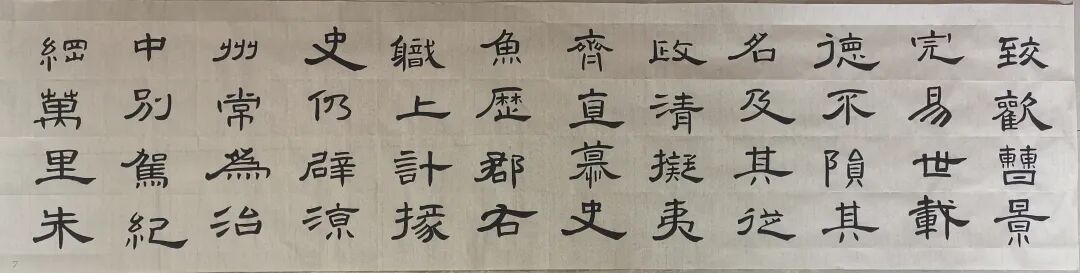 致歡曹景
完易世載
德不隕其
名及其從
政清擬夷
齊直慕史
魚歷郡右
職上計掾
史仍辟涼
州常為治
中別駕紀
綱萬里朱
7